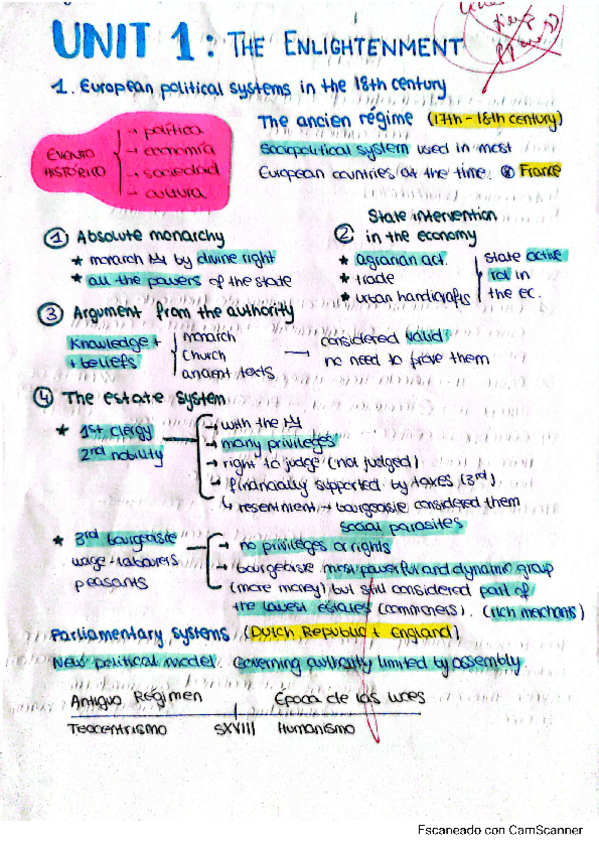 UNIT 1: THE ENLIGHTENMENT
1. European political systems in the 18th century
EVENTO HISTÓRICO
→ política
→ economía
→ sociedad
→ cultura
The ancien régime (17th-18th century)
Sociopolitical system used in most
European countries at the time. France
① Absolute monarchy
* monarch by divine right
* all the powers of the state
② State intervention
in the economy
* agrarian act.
* trade
* urban handicrafts
state active
rol in
the ec.
③ Argument from the authority
Knowledge +
+ beliefs
monarch
church
ancient texts
— considered valid
no need to prove them
④ The estate system
* 1st clergy
2nd nobility
→ with the
→ many privileges
→ right to judge (not judged)
→ financially supported by taxes (3rd)
↳ resentment → bourgeoisie considered them
social parasites
* 3rd bourgeoisie
wage-labourers
peasants
→ no privileges or rights
→ bourgeoisie most powerful and dynamic group
(more money) but still considered part of
the lowest estates (commoners). (rich merchants)
Parliamentary systems (Dutch Republic + England)
New political model. Governing authority limited by assembly.
Antiguo Régimen
Época de las luces
Teocentrismo SXVIII Humanismo
Escaneado con CamScanner